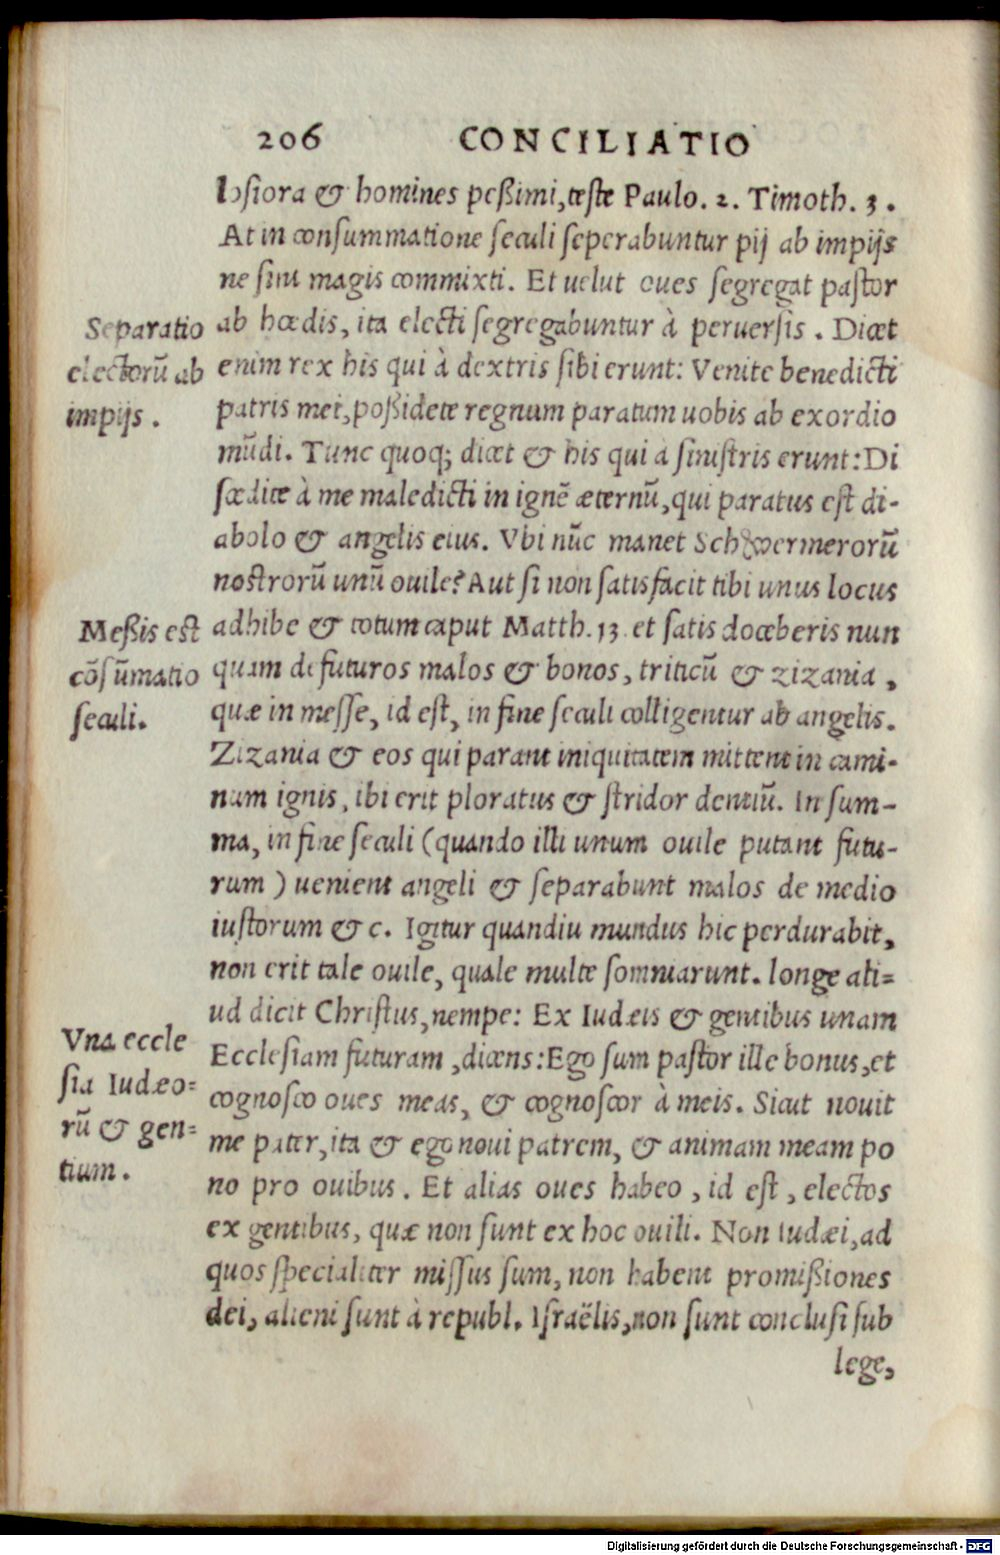 206 CONCILIATIO
losiora & homines peßimi, teste Paulo. 2. Timoth. 3.
At in consummatione seculi seperabuntur pij ab impijs
ne sint magis commixti. Et uelut oues segregat pastor
Separatio
electorũ ab
impijs.
ab hœdis, ita electi segregabuntur à peruersis. Dicet
enim rex his qui à dextris sibi erunt: Venite benedicti
patris mei, poßidete regnum paratum uobis ab exordio
mũdi. Tunc quoq; dicet & his qui a sinistris erunt: Di
scedite à me maledicti in ignẽ æternũ, qui paratus est di-
abolo & angelis eius. Vbi nũc manet Schwermerorũ
nostrorũ unũ ouile? Aut si non satisfacit tibi unus locus
Meßis est
cõsũmatio
seculi.
adhibe & totum caput Matth. 13. et satis doceberis nun
quam defuturos malos & bonos, triticũ & zizania,
quæ in messe, id est, in fine seculi colligentur ab angelis.
Zizania & eos qui parant iniquitatem mittent in cami-
num ignis, ibi erit ploratus & stridor dentiũ. In sum-
ma, in fine seculi (quando illi unum ouile putant futu-
rum) uenient angeli & separabunt malos de medio
iustorum & c. Igitur quandiu mundus hic perdurabit,
non erit tale ouile, quale multe somniarunt. longe ali=
ud dicit Christus, nempe: Ex Iudæis & gentibus unam
Vna eccle
sia Iudæo=
rũ & gen=
tium.
Ecclesiam futuram, dicens: Ego sum pastor ille bonus, et
cognosco oues meas, & cognoscor à meis. Sicut nouit
me pater, ita & ego noui patrem, & animam meam po
no pro ouibus. Et alias oues habeo, id est, electos
ex gentibus, quæ non sunt ex hoc ouili. Non Iudæi, ad
quos specialiter missus sum, non habent promißiones
dei, alieni sunt à republ. Israëlis, non sunt conclusi sub
lege,
Digitalisierung gefördert durch die Deutsche Forschungsgemeinschaft - DFG